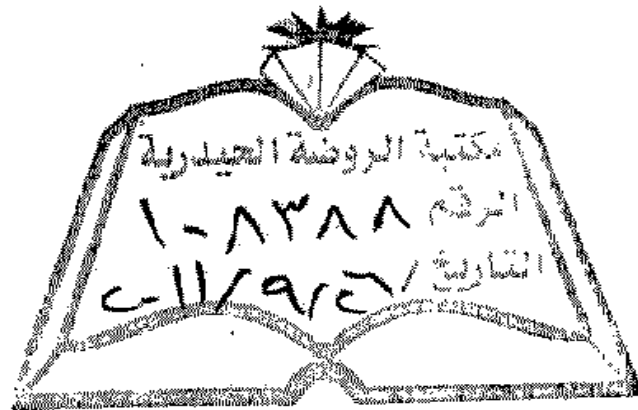 مكتبة الروضة الحيدرية
الرقم ١٠٨٣٨٨
التاريخ ٢٠١١/٩/٢٦